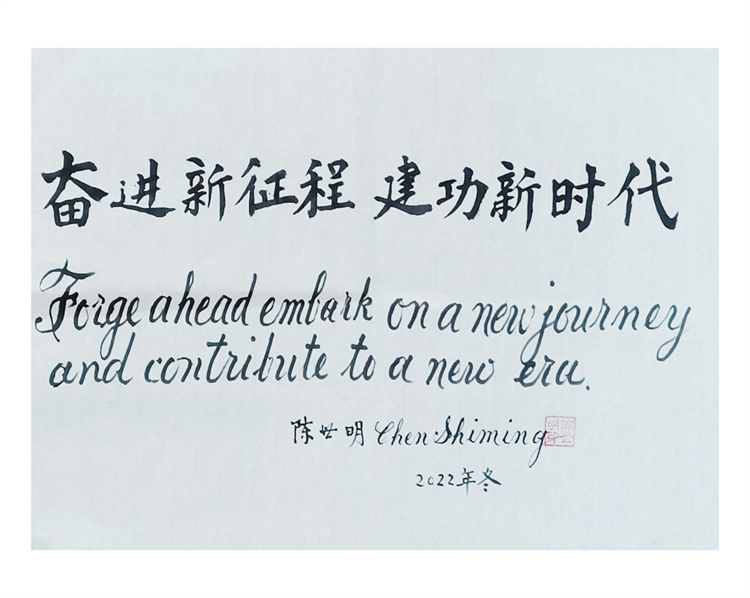 奋进新征程 建功新时代
Forge ahead embark on a new journey
and contribute to a new era.
陈世明 Chen Shiming
2022年冬